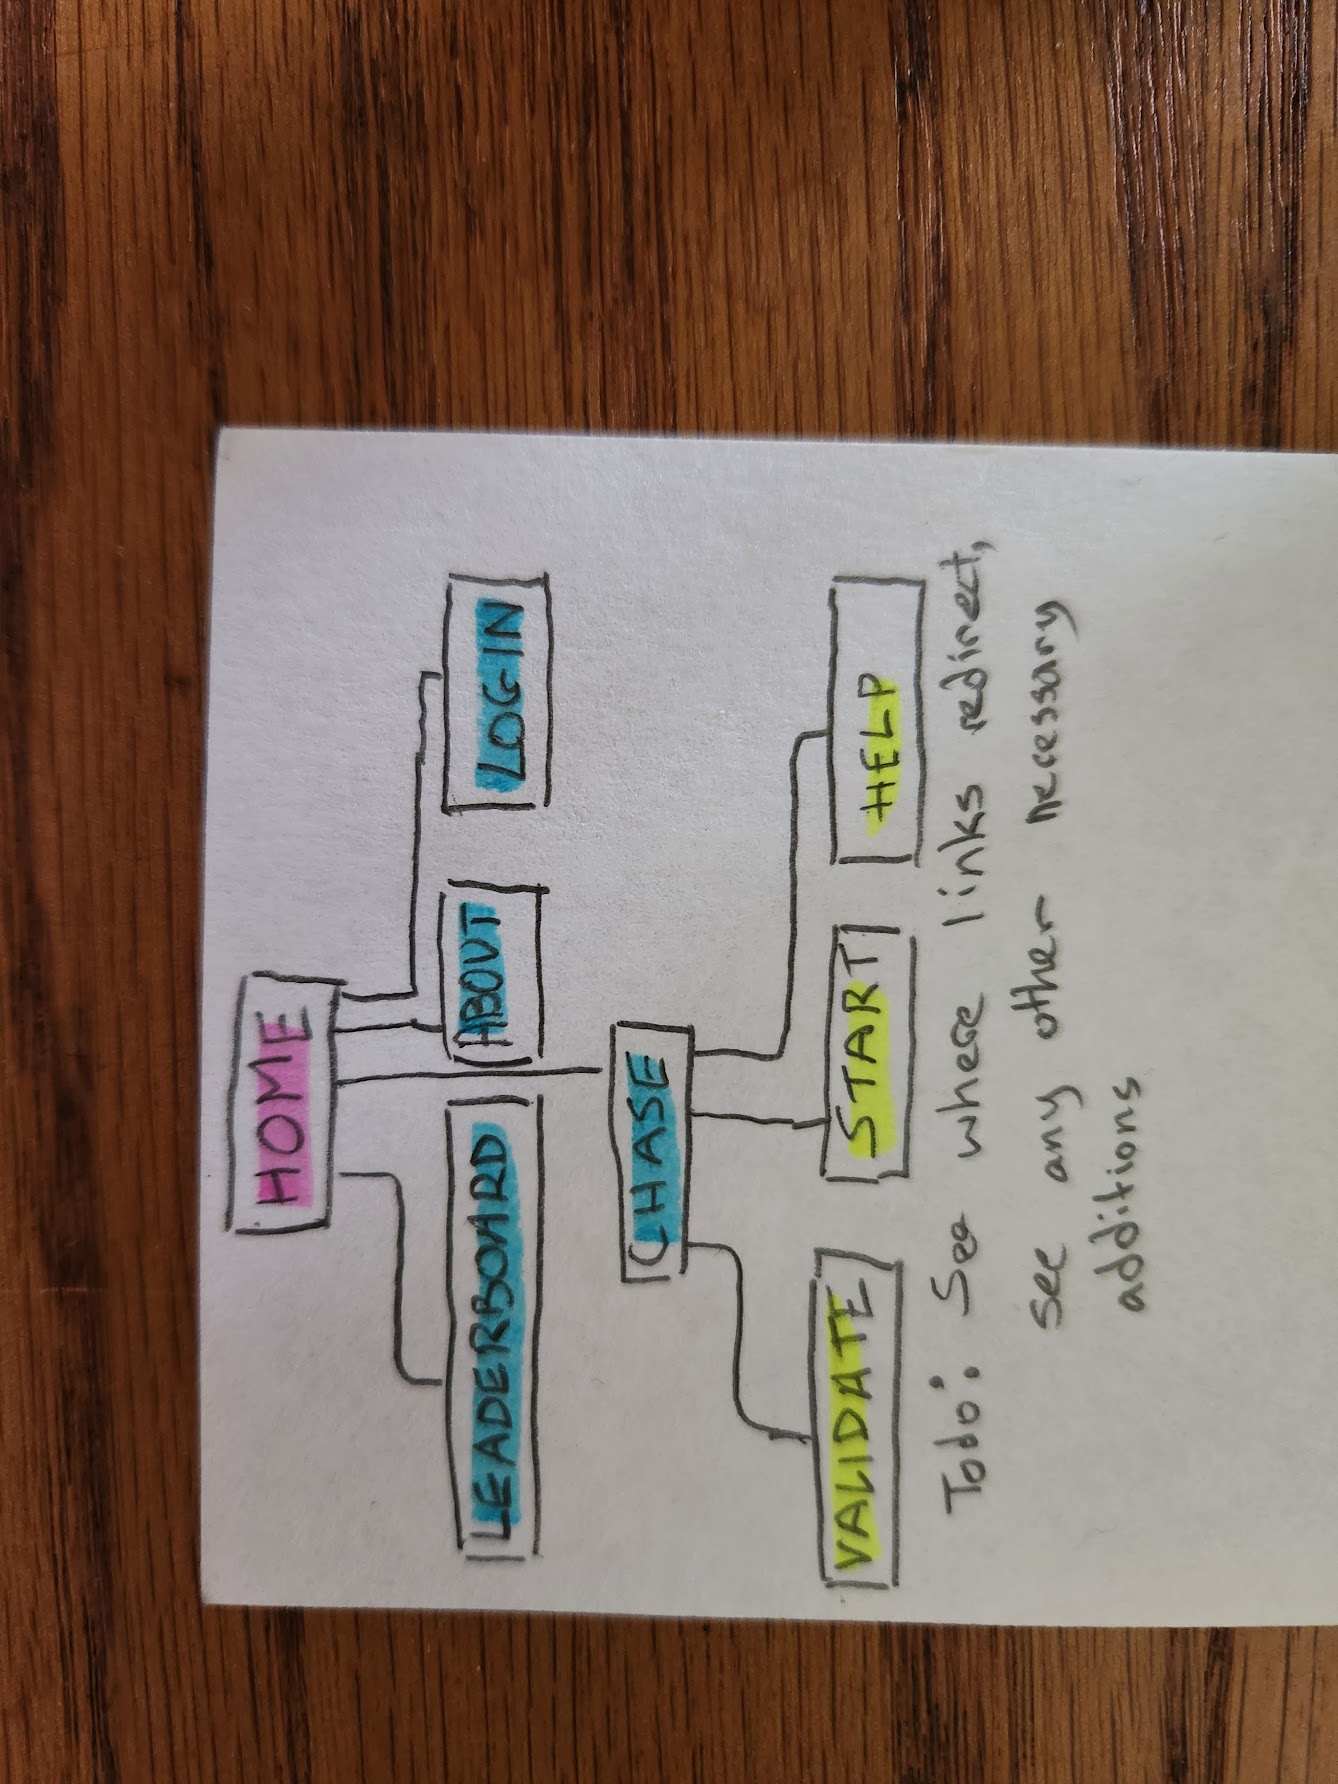 HOME
LEADERBOARD ABOUT LOGIN
CHASE
VALIDATE START HELP
Todo: See where links redirect,
see any other necessary
additions